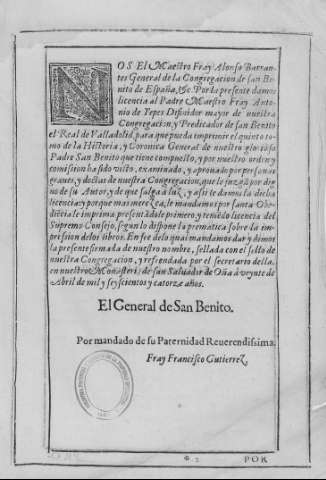 NOS El Maestro Fray Alonso Barran-
tes General de la Congregacion de san Be-
nito de España, &c. Por la presente damos
licencia al Padre Maestro Fray Anto-
nio de Yepes Difinidor mayor de nuestra
Congregacion, y Predicador de san Benito
el Real de Valladolid, para que pueda imprimir el quinto to-
mo de la Historia, y Coronica General de nuestro glorioso
Padre San Benito que tiene compuesto, y por nuestro orden y
comision ha sido visto, examinado, y aprouado por personas
graues, y doctas de nuestra Congregacion, que le juzgan por dig
no de su Autor, y de que salga a luz, y assi le damos la dicha
licencia: y porque mas merezca, le mandamos por santa Obe-
diẽcia le imprima presentãdole primero, y teniẽdo licencia del
Supremo Consejo, segun lo dispone la prematica sobre la im-
pression de los libros. En fee de lo qual mandamos dar y dimos
la presente firmada de nuestro nombre, sellada con el sello de
nuestra Congregacion, y refrendada por el secretario della.
en nuestro Monasterio de san Saluador de Oña à veynte de
Abril de mil y seyscientos y catorze años.
El General de San Benito.
Por mandado de su Paternidad Reuerendissima.
Fray Francisco Gutierrez.
2 POR